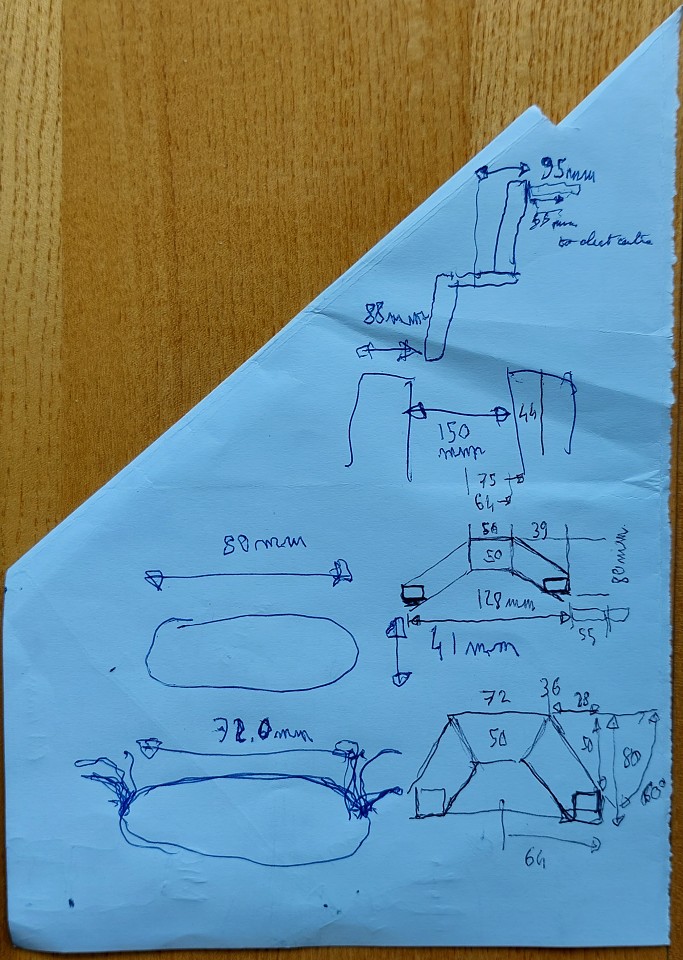 95mm
55mm
to duct centre
88mm
44
150
mm
75
64
50 39
50
80mm
80mm
128mm
55
41mm
72 36 28
72.0mm
50 50 80
60°
64